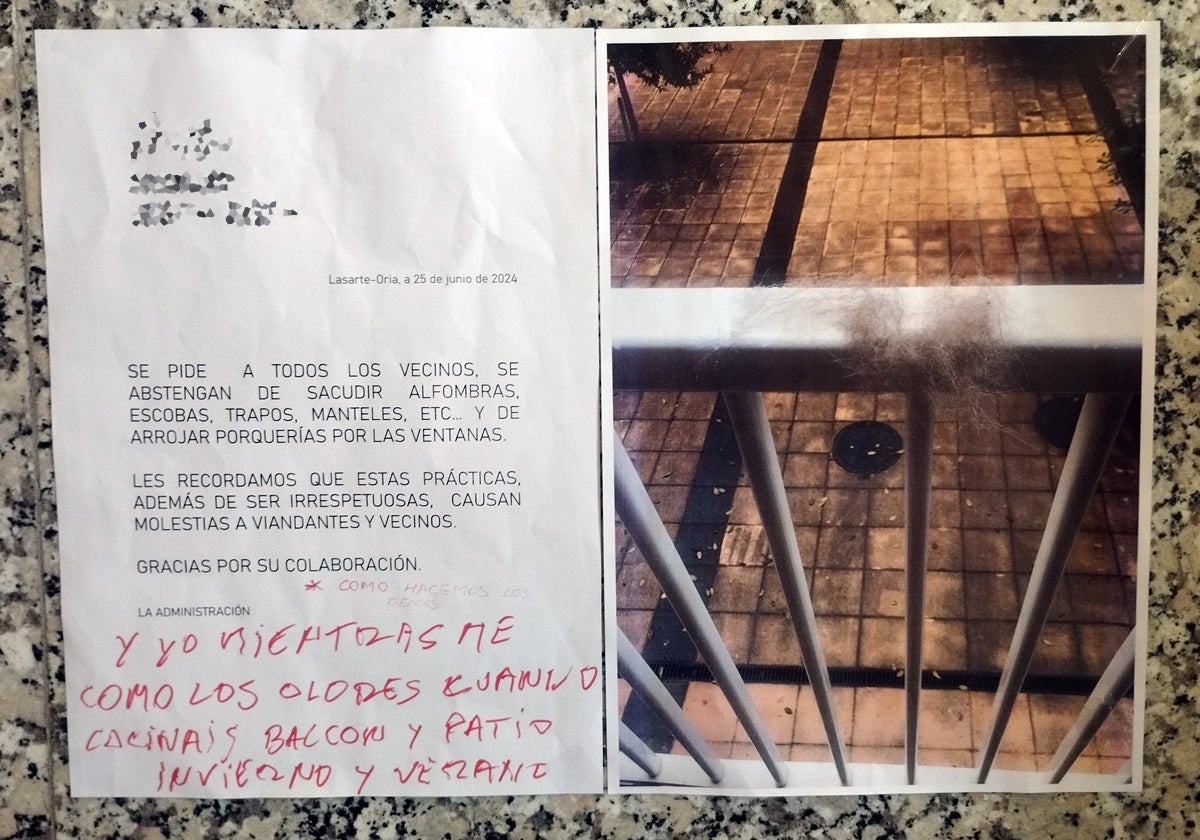 Lasarte-Oria, a 25 de junio de 2024
SE PIDE A TODOS LOS VECINOS, SE
ABSTENGAN DE SACUDIR ALFOMBRAS,
ESCOBAS, TRAPOS, MANTELES, ETC... Y DE
ARROJAR PORQUERÍAS POR LAS VENTANAS.
LES RECORDAMOS QUE ESTAS PRÁCTICAS,
ADEMÁS DE SER IRRESPETUOSAS, CAUSAN
MOLESTIAS A VIANDANTES Y VECINOS.
GRACIAS POR SU COLABORACIÓN.
* COMO HACEMOS LOS
DEMÁS
LA ADMINISTRACIÓN
Y YO MIENTRAS ME
COMO LOS OLORES KUANNO
COCINAIS BALCON Y PATIO
INVIERNO Y VERANO